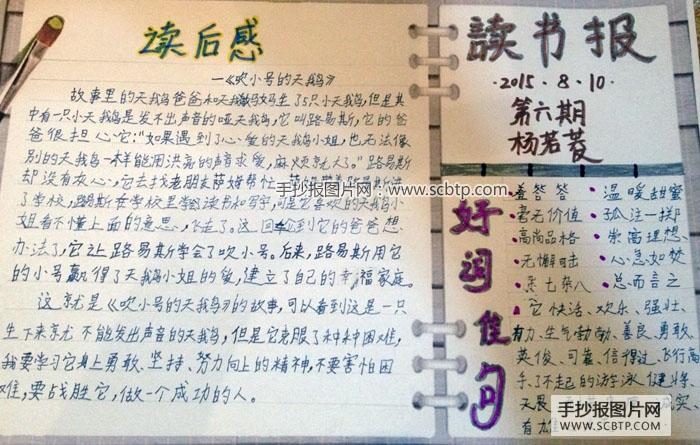 读后感
—《吹小号的天鹅》
故事里的天鹅爸爸和天鹅妈妈生了5只小天鹅,但是其
中有一只小天鹅是发不出声音的哑天鹅,它叫路易斯,它的爸
爸很担心它:"如果遇到了心爱的天鹅小姐,也无法像
别的天鹅一样能用洪亮的声音求爱,麻烦就大了。"路易斯
却没有灰心,它去找老朋友萨姆帮忙
了学校,路易斯在学校里学会读和写字,可是它喜欢的天鹅小
姐看不懂上面的意思,飞走了。这一回轮到它的爸爸想
办法了,它让路易斯学会了吹小号。后来,路易斯用它
的小号赢得了天鹅小姐的爱,建立了自己的幸福家庭。
这就是《吹小号的天鹅》的故事,可以看到这是一只
生下来就不能发出声音的天鹅,但是它克服了种种困难,
我要学习它身上勇敢、坚持、努力向上的精神,不要害怕困
难,要战胜它,做一个成功的人。
手抄报图片网:www.scbtp.com
读书报
·2015.8.10·
第六期
杨若菱
好词佳句
·羞答答 ·温暖甜蜜
·毫无价值 ·孤注一掷
·高尚品格 ·崇高理想、
·无懈可击 ·心急如焚
·乱七八 ·总而言之
·它快活、欢乐、强壮、
有力、生气勃勃、善良、勇敢、
英俊、可靠、信得过、飞行高
手、了不起的游泳健将、
无畏 实、
有雄
手抄报图片网
WWW.SCBTP.COM